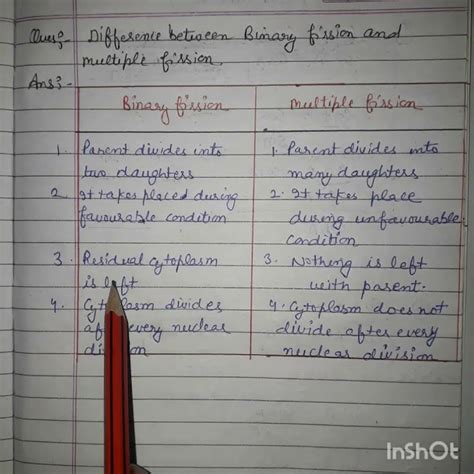 Ques:- Difference between Binary fission and
multiple fission.
Ans:-
Binary fission
1. Parent divides into
two daughters
2. It takes placed during
favourable condition
3. Residual cytoplasm
is left
4. Cytoplasm divides
every nuclear
Multiple fission
1. Parent divides into
many daughters
2. It takes place
during unfavourable
condition
3. Nothing is left
with parent.
4. Cytoplasm does not
divide after every
nuclear division
InShOt